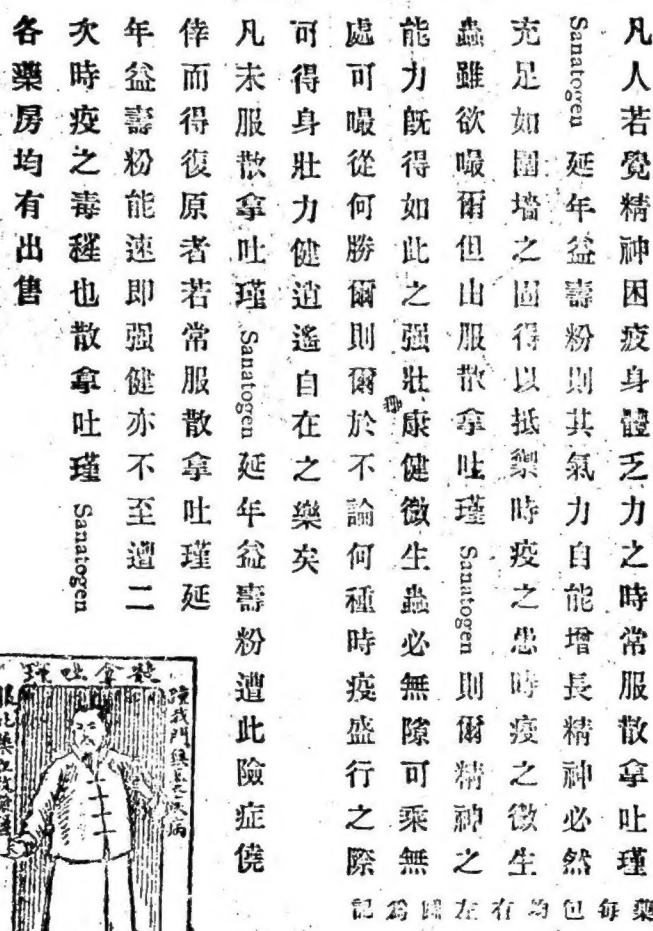 凡人若覺精神困疲身體乏力之時常服散拿吐瑾
Sanatogen 延年益壽粉則其氣力自能增長精神必然
充足如圍墻之固得以抵禦時疫之患時疫之微生
蟲雖欲嘬爾但由服散拿吐瑾 Sanatogen 則爾精神之
能力既得如此之强壯康健微生蟲必無隙可乘無
處可嘬從何勝爾則爾於不論何種時疫盛行之際
可得身壯力健逍遙自在之樂矣
凡未服散拿吐瑾 Sanatogen 延年益壽粉遭此險症僥
倖而得復原者若常服散拿吐瑾延
年益壽粉能速即强健亦不至遭二
次時疫之毒蟲也散拿吐瑾 Sanatogen
各藥房均有出售
藥每包均有左圖爲記
散拿吐瑾